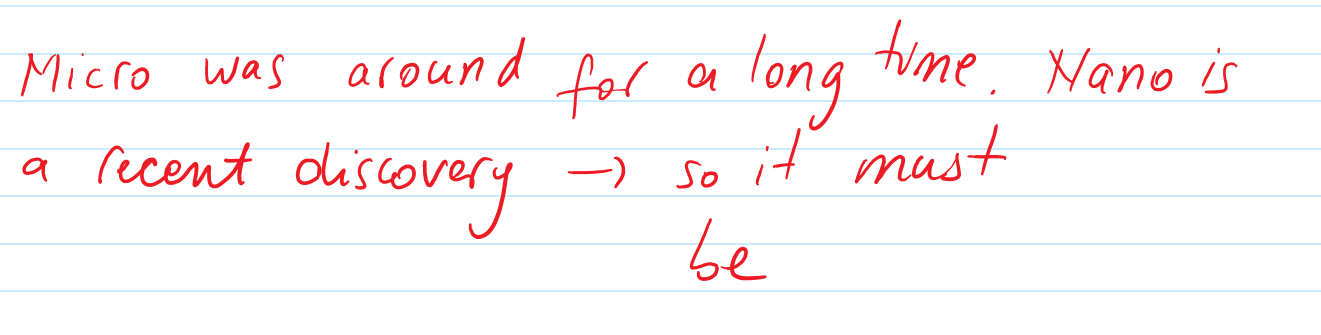 Micro was around for a long time. Nano is
a recent discovery → so it must
be